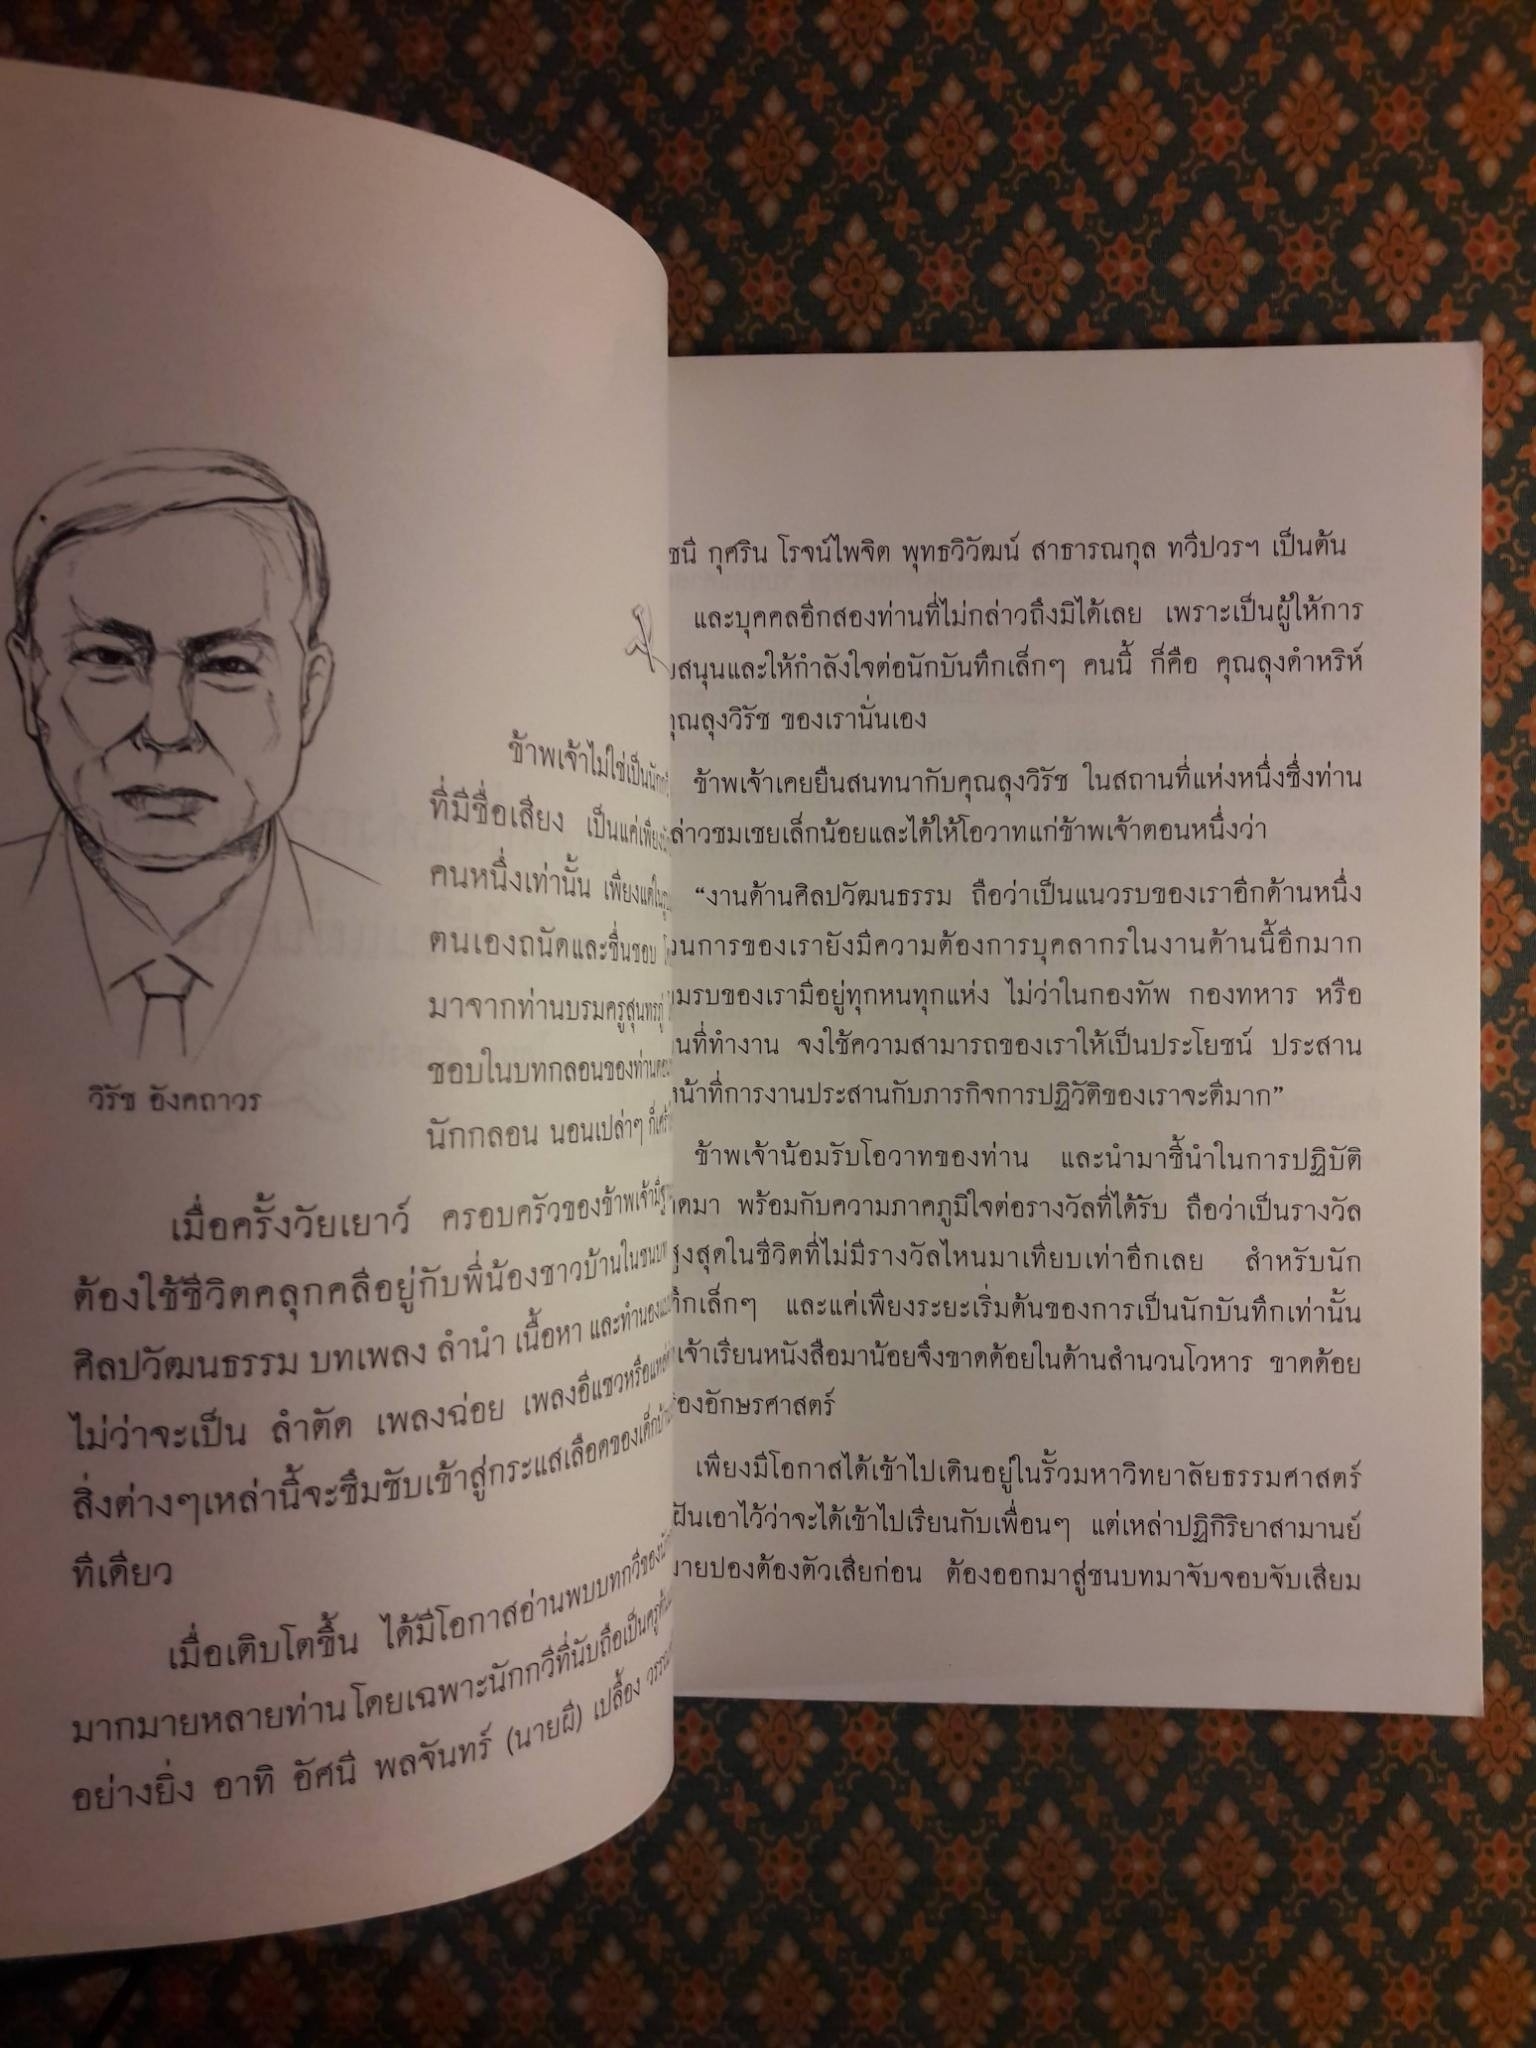 วิรัช อังคถาวร
ข้าพเจ้าไม่ใช่เป็น
ที่มีชื่อเสียง เป็นแค่เพียง
คนหนึ่งเท่านั้น เพียงแต่
ตนเองถนัดและชื่นชอบ
มาจากท่านบรมครูสุนทรภู่
ชอบในบทกลอนของท่าน
นักกลอน นอนเปล่าๆ ก็
เมื่อครั้งวัยเยาว์ ครอบครัวของข้าพเจ้า
ต้องใช้ชีวิตคลุกคลีอยู่กับพี่น้องชาวบ้านในชนบท
ศิลปวัฒนธรรม บทเพลง ลำนำ เนื้อหา และทำนอง
ไม่ว่าจะเป็น ลำตัด เพลงฉ่อย เพลงอีแซวหรือ
สิ่งต่างๆเหล่านี้จะซึมซับเข้าสู่กระแสเลือดของเด็ก
ทีเดียว
เมื่อเติบโตขึ้น ได้มีโอกาสอ่านพบบทกวีของ
มากมายหลายท่าน โดยเฉพาะนักกวีที่นับถือเป็นครู
อย่างยิ่ง อาทิ อัศนี พลจันทร์ (นายผี) เปลื้อง
กุศริน โรจน์ไพจิต พุทธวิวัฒน์ สาธารณกุล ทวีปวรฯ เป็นต้น
และบุคคลอีกสองท่านที่ไม่กล่าวถึงมิได้เลย เพราะเป็นผู้ให้การ
สนุนและให้กำลังใจต่อนักบันทึกเล็กๆ คนนี้ ก็คือ คุณลุงดำหริห์
คุณลุงวิรัช ของเรานั่นเอง
ข้าพเจ้าเคยยืนสนทนากับคุณลุงวิรัช ในสถานที่แห่งหนึ่งซึ่งท่าน
ล่าวชมเชยเล็กน้อยและได้ให้โอวาทแก่ข้าพเจ้าตอนหนึ่งว่า
“งานด้านศิลปวัฒนธรรม ถือว่าเป็นแนวรบของเราอีกด้านหนึ่ง
วนการของเรายังมีความต้องการบุคลากรในงานด้านนี้อีกมาก
มรบของเรามีอยู่ทุกหนทุกแห่ง ไม่ว่าในกองทัพ กองทหาร หรือ
นที่ทำงาน จงใช้ความสามารถของเราให้เป็นประโยชน์ ประสาน
หน้าที่การงานประสานกับภารกิจการปฏิวัติของเราจะดีมาก”
ข้าพเจ้าน้อมรับโอวาทของท่าน และนำมาชี้นำในการปฏิบัติ
ดมา พร้อมกับความภาคภูมิใจต่อรางวัลที่ได้รับ ถือว่าเป็นรางวัล
สูงสุดในชีวิตที่ไม่มีรางวัลไหนมาเทียบเท่าอีกเลย สำหรับนัก
ทึกเล็กๆ และแค่เพียงระยะเริ่มต้นของการเป็นนักบันทึกเท่านั้น
เจ้าเรียนหนังสือมาน้อยจึงขาดด้อยในด้านสำนวนโวหาร ขาดด้อย
องอักษรศาสตร์
เพียงมีโอกาสได้เข้าไปเดินอยู่ในรั้วมหาวิทยาลัยธรรมศาสตร์
ฝันเอาไว้ว่าจะได้เข้าไปเรียนกับเพื่อนๆ แต่เหล่าปฏิกิริยาสามานย์
มายปองต้องตัวเสียก่อน ต้องออกมาสู่ชนบทมาจับจอบจับเสียม